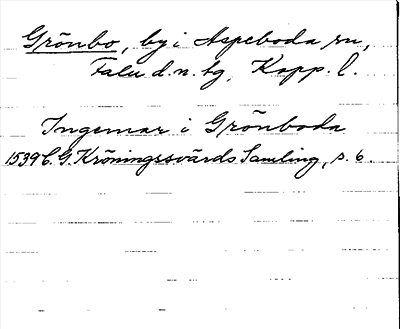 Grönbo, by i Aspeboda sn,
Falu d.n. tg, Kopp. l.
Ingemar i Grönboda
1539 C. G. Kröningssvärds Samling, s. 6.